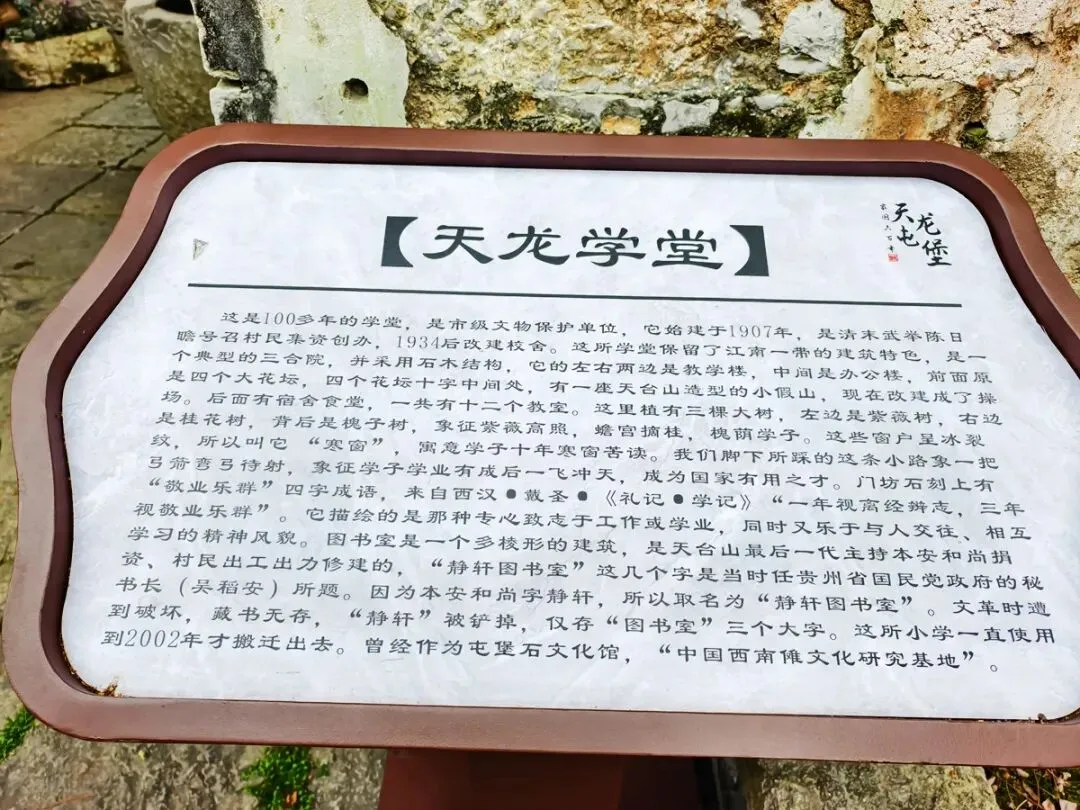 【天龙学堂】
天龙屯堡
家国六百年
这是100多年的学堂，是市级文物保护单位，它始建于1907年，是清末武举陈日
瞻号召村民集资创办，1934后改建校舍。这所学堂保留了江南一带的建筑特色，是一
个典型的三合院，并采用石木结构，它的左右两边是教学楼，中间是办公楼，前面原
是四个大花坛，四个花坛十字中间处，有一座天台山造型的小假山，现在改建成了操
场。后面有宿舍食堂，一共有十二个教室。这里植有三棵大树，左边是紫薇树，右边
是桂花树，背后是槐子树，象征紫薇高照，蟾宫摘桂，槐荫学子。这些窗户呈冰裂
纹，所以叫它“寒窗”，寓意学子十年寒窗苦读。我们脚下所踩的这条小路象一把
弓箭弯弓待射，象征学子学业有成后一飞冲天，成为国家有用之才。门坊石刻上有
“敬业乐群”四字成语，来自西汉●戴圣●《礼记●学记》“一年视离经辨志，三年
视敬业乐群”。它描绘的是那种专心致志于工作或学业，同时又乐于与人交往、相互
学习的精神风貌。图书室是一个多棱形的建筑，是天台山最后一代主持本安和尚捐
资、村民出工出力修建的，“静轩图书室”这几个字是当时任贵州省国民党政府的秘
书长（吴稻安）所题。因为本安和尚字静轩，所以取名为“静轩图书室”。文革时遭
到破坏，藏书无存，“静轩”被铲掉，仅存“图书室”三个大字。这所小学一直使用
到2002年才搬迁出去。曾经作为屯堡石文化馆，“中国西南傩文化研究基地”。